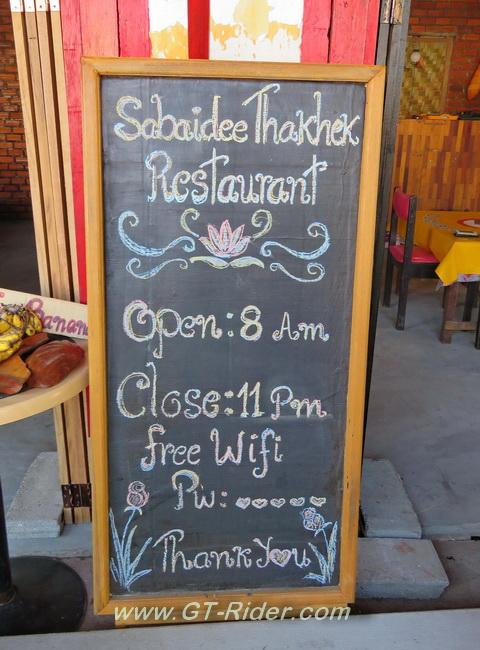 Sabaidee Thakhek
Restaurant
Open: 8 Am
Close: 11 Pm
free Wifi
Pw:
Thank You
Banan
www.GT-Rider.com